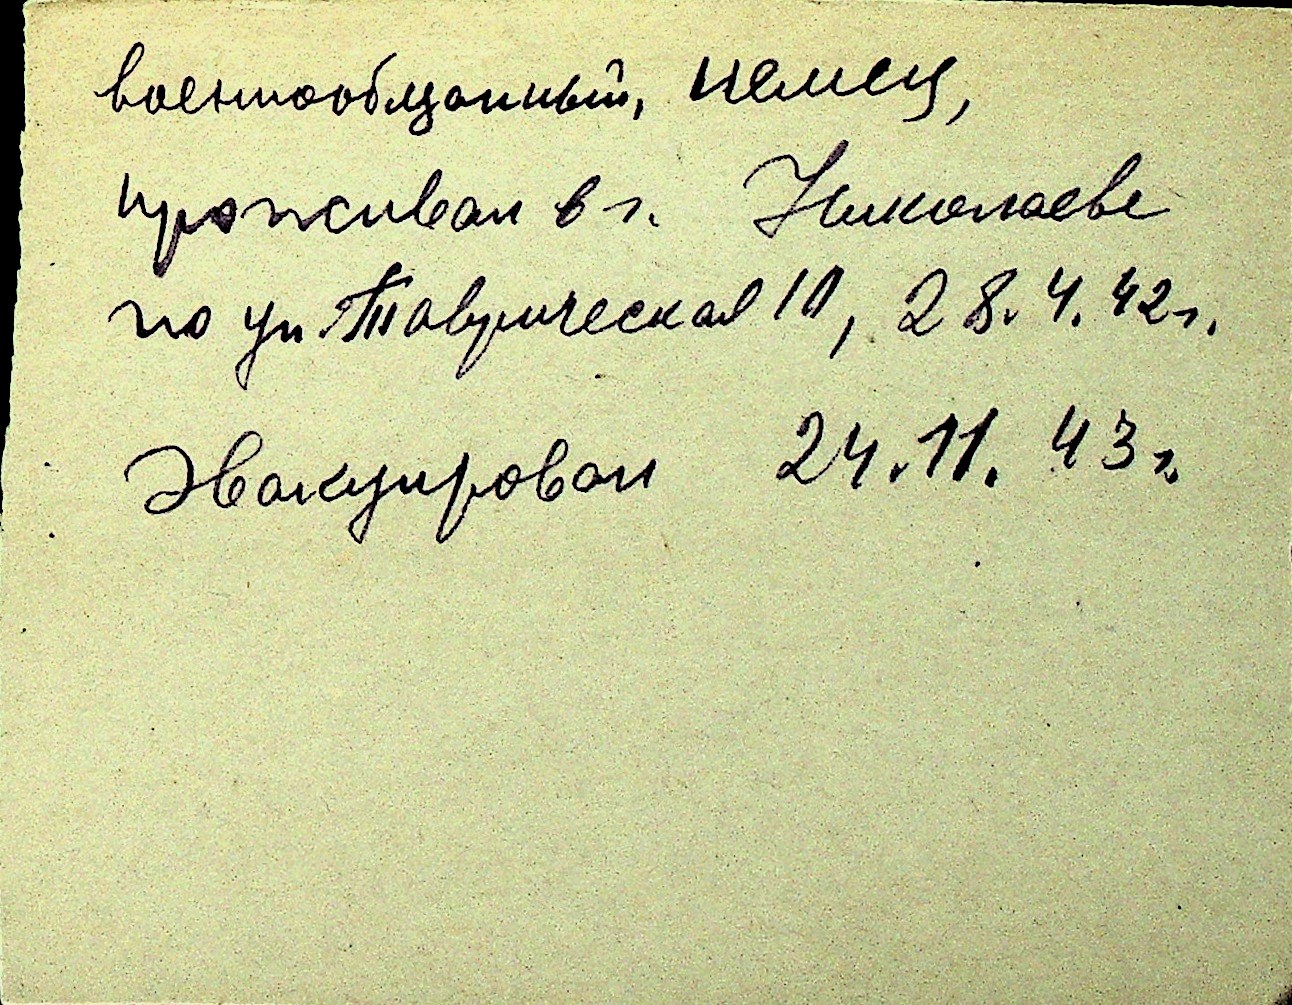 военнообязанный, немец,
проживал в г. Николаеве
по ул. Таврическая 10, 28.4.42г.
Эвакуирован 24.11.43г.